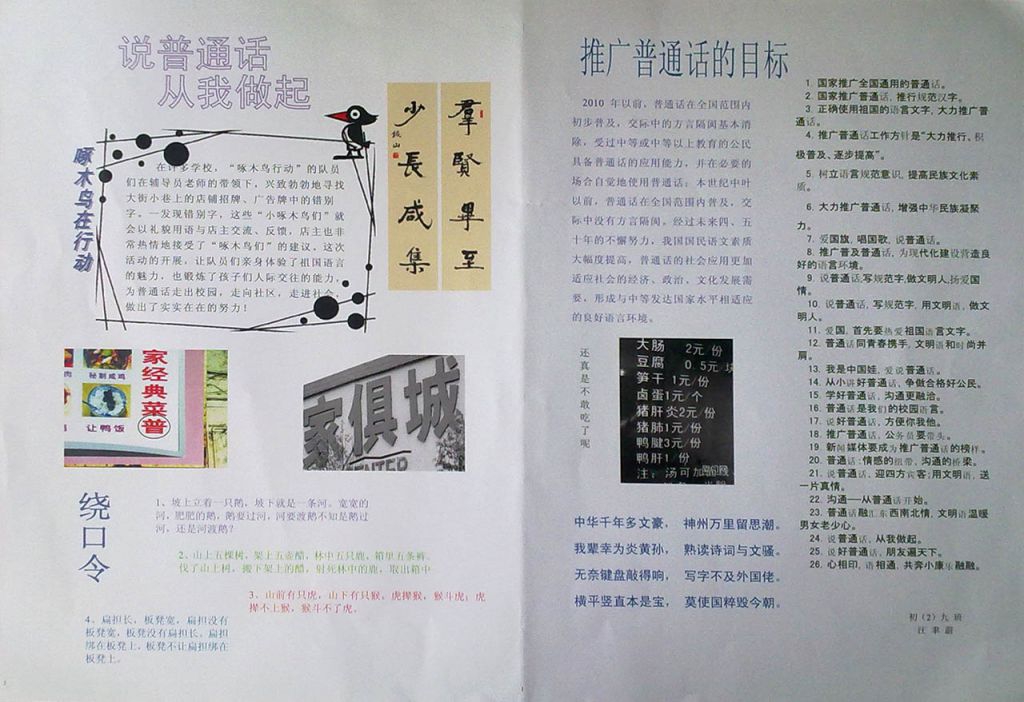 说普通话
从我做起
啄木鸟在行动
在许多学校，“啄木鸟行动”的队员
们在辅导员老师的带领下，兴致勃勃地寻找
大街小巷上的店铺招牌、广告牌中的错别
字。一发现错别字，这些“小啄木鸟们”就
会以礼貌用语与店主交流、反馈，店主也非
常热情地接受了“啄木鸟们”的建议。这次
活动的开展，让队员们亲身体验了祖国语言
的魅力，也锻炼了孩子们人际交往的能力，
为普通话走出校园，走向社区，走进社会，
做出了实实在在的努力！
羣賢畢至
少長咸集
家经典菜普
秘制咸鸡
让鸭饭
家俱城
ENTER
绕口令
1、坡上立着一只鹅，坡下就是一条河。宽宽的
河，肥肥的鹅，鹅要过河，河要渡鹅不知是鹅过
河，还是河渡鹅？
2、山上五棵树，架上五壶醋，林中五只鹿，箱里五条裤。
伐了山上树，搬下架上的醋，射死林中的鹿，取出箱中
3、山前有只虎，山下有只猴。虎撵猴，猴斗虎；虎
撵不上猴，猴斗不了虎。
4、扁担长，板凳宽，扁担没有
板凳宽，板凳没有扁担长。扁担
绑在板凳上，板凳不让扁担绑在
板凳上。
推广普通话的目标
2010 年以前，普通话在全国范围内
初步普及，交际中的方言隔阂基本消
除，受过中等或中等以上教育的公民
具备普通话的应用能力，并在必要的
场合自觉地使用普通话；本世纪中叶
以前，普通话在全国范围内普及，交
际中没有方言隔阂。经过未来四、五
十年的不懈努力，我国国民语文素质
大幅度提高，普通话的社会应用更加
适应社会的经济、政治、文化发展需
要，形成与中等发达国家水平相适应
的良好语言环境。
还真是不敢吃了呢
大肠 2元/份
豆腐 0.5元/块
笋干 1元/份
卤蛋1元/个
猪肝炎2元/份
猪肺1元/份
鸭腱3元/份
鸭肝1/份
注：汤可加
中华千年多文豪， 神州万里留思潮。
我辈幸为炎黄孙， 熟读诗词与文骚。
无奈键盘敲得响， 写字不及外国佬。
横平竖直本是宝， 莫使国粹毁今朝。
1. 国家推广全国通用的普通话。
2. 国家推广普通话，推行规范汉字。
3. 正确使用祖国的语言文字，大力推广普
通话。
4. 推广普通话工作方针是“大力推行、积
极普及、逐步提高”。
5. 树立语言规范意识，提高民族文化素
质。
6. 大力推广普通话，增强中华民族凝聚
力。
7. 爱国旗，唱国歌，说普通话。
8. 推广普及普通话，为现代化建设营造良
好的语言环境。
9. 说普通话,写规范字,做文明人,扬爱国
情。
10. 说普通话，写规范字，用文明语，做文
明人。
11. 爱国，首先要热爱祖国语言文字。
12. 普通话同青春携手，文明语和时尚并
肩。
13. 我是中国娃，爱说普通话。
14. 从小讲好普通话，争做合格好公民。
15. 学好普通话，沟通更融洽。
16. 普通话是我们的校园语言。
17. 说好普通话，方便你我他。
18. 推广普通话，公务员要带头。
19. 新闻媒体要成为推广普通话的榜样。
20. 普通话:情感的纽带，沟通的桥梁。
21. 说普通话，迎四方宾客;用文明语，送
一片真情。
22. 沟通——从普通话开始。
23. 普通话融汇东西南北情，文明语温暖
男女老少心。
24. 说普通话，从我做起。
25. 说好普通话，朋友遍天下。
26. 心相印，语相通，共奔小康乐融融。
初（2）九 班